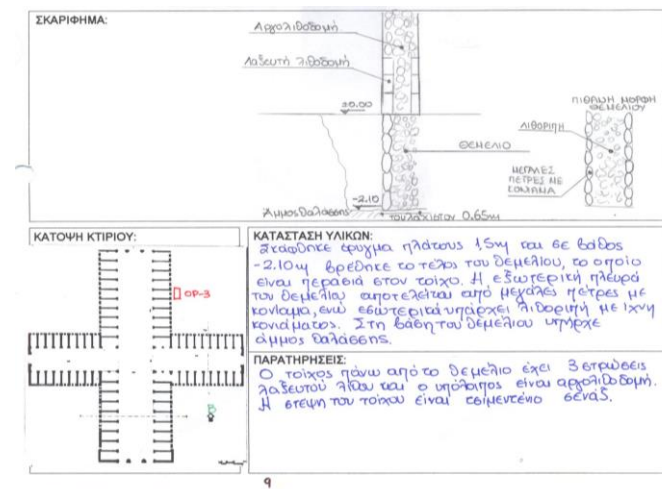 ΣΚΑΡΙΦΗΜΑ:
Αργολιθοδομή
Λαξευτή λιθοδομή
±0.00
ΘΕΜΕΛΙΟ
-2.10
Άμμος θαλάσσης
τουλάχιστον 0.65m
ΠΙΘΑΝΗ ΜΟΡΦΗ
ΘΕΜΕΛΙΟΥ
ΛΙΘΟΡΙΠΗ
ΜΕΓΑΛΕΣ
ΠΕΤΡΕΣ ΜΕ
ΚΟΝΙΑΜΑ
ΚΑΤΟΨΗ ΚΤΙΡΙΟΥ:
ΟΡ-3
ΚΑΤΑΣΤΑΣΗ ΥΛΙΚΩΝ:
Σκάφθηκε όρυγμα πλάτους 1,5m και σε βάθος
-2.10m βρέθηκε το τέλος του θεμελίου, το οποίο
είναι περασιά στον τοίχο. Η εξωτερική πλευρά
του θεμελίου αποτελείται από μεγάλες πέτρες με
κονίαμα, ενώ εσωτερικά υπάρχει λιθοριπή με ίχνη
κονιάματος. Στη βάση του θεμελίου υπήρχε
άμμος θαλάσσης.
ΠΑΡΑΤΗΡΗΣΕΙΣ:
Ο τοίχος πάνω από το θεμέλιο έχει 3 στρώσεις
λαξευτού λίθου και ο υπόλοιπος είναι αργολιθοδομή.
Η στέψη του τοίχου είναι τσιμεντένιο σενάζ.
9